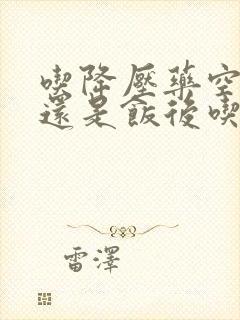 喫降壓藥空
還是飯後喫
雷澤